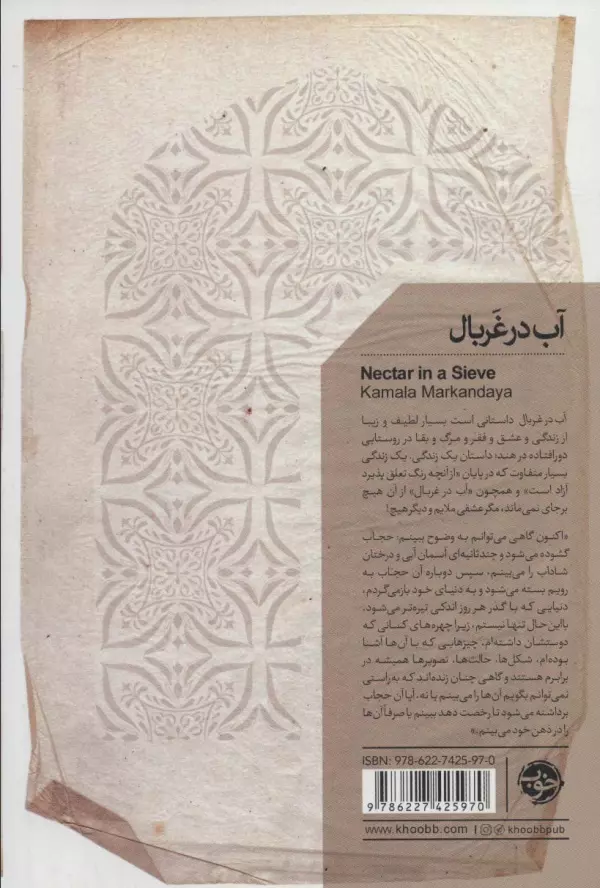 آب در غَربال
Nectar in a Sieve
Kamala Markandaya
آب در غربال داستانی است بسیار لطیف و زیبا
از زندگی و عشق و فقر و مرگ و بقا در روستایی
دورافتاده در هند؛ داستان یک زندگی. یک زندگی
بسیار متفاوت که در پایان «از آنچه رنگ تعلق پذیرد
آزاد است» و همچون «آب در غربال» از آن هیچ
برجای نمی‌ماند، مگر عشقی ملایم و دیگر هیچ!
«اکنون گاهی می‌توانم به وضوح ببینم: حجاب
گشوده می‌شود و چند ثانیه‌ای آسمان آبی و درختان
شاداب را می‌بینم، سپس دوباره آن حجاب به
رویم بسته می‌شود و به دنیای خود بازمی‌گردم،
دنیایی که با گذر هر روز اندکی تیره‌تر می‌شود.
بااین‌حال تنها نیستم، زیرا چهره‌های کسانی که
دوستشان داشته‌ام، چیزهایی که با آن‌ها آشنا
بوده‌ام، شکل‌ها، حالت‌ها، تصویرها همیشه در
برابرم هستند و گاهی چنان زنده‌اند که به‌راستی
نمی‌توانم بگویم آن‌ها را می‌بینم یا نه، آیا آن حجاب
برداشته می‌شود تا رخصت دهد ببینم یا صرفاً آن‌ها
را در ذهن خود می‌بینم.»
ISBN: 978-622-7425-97-0
9 786227 425970
خوب
www.khoobb.com | khoobbpub